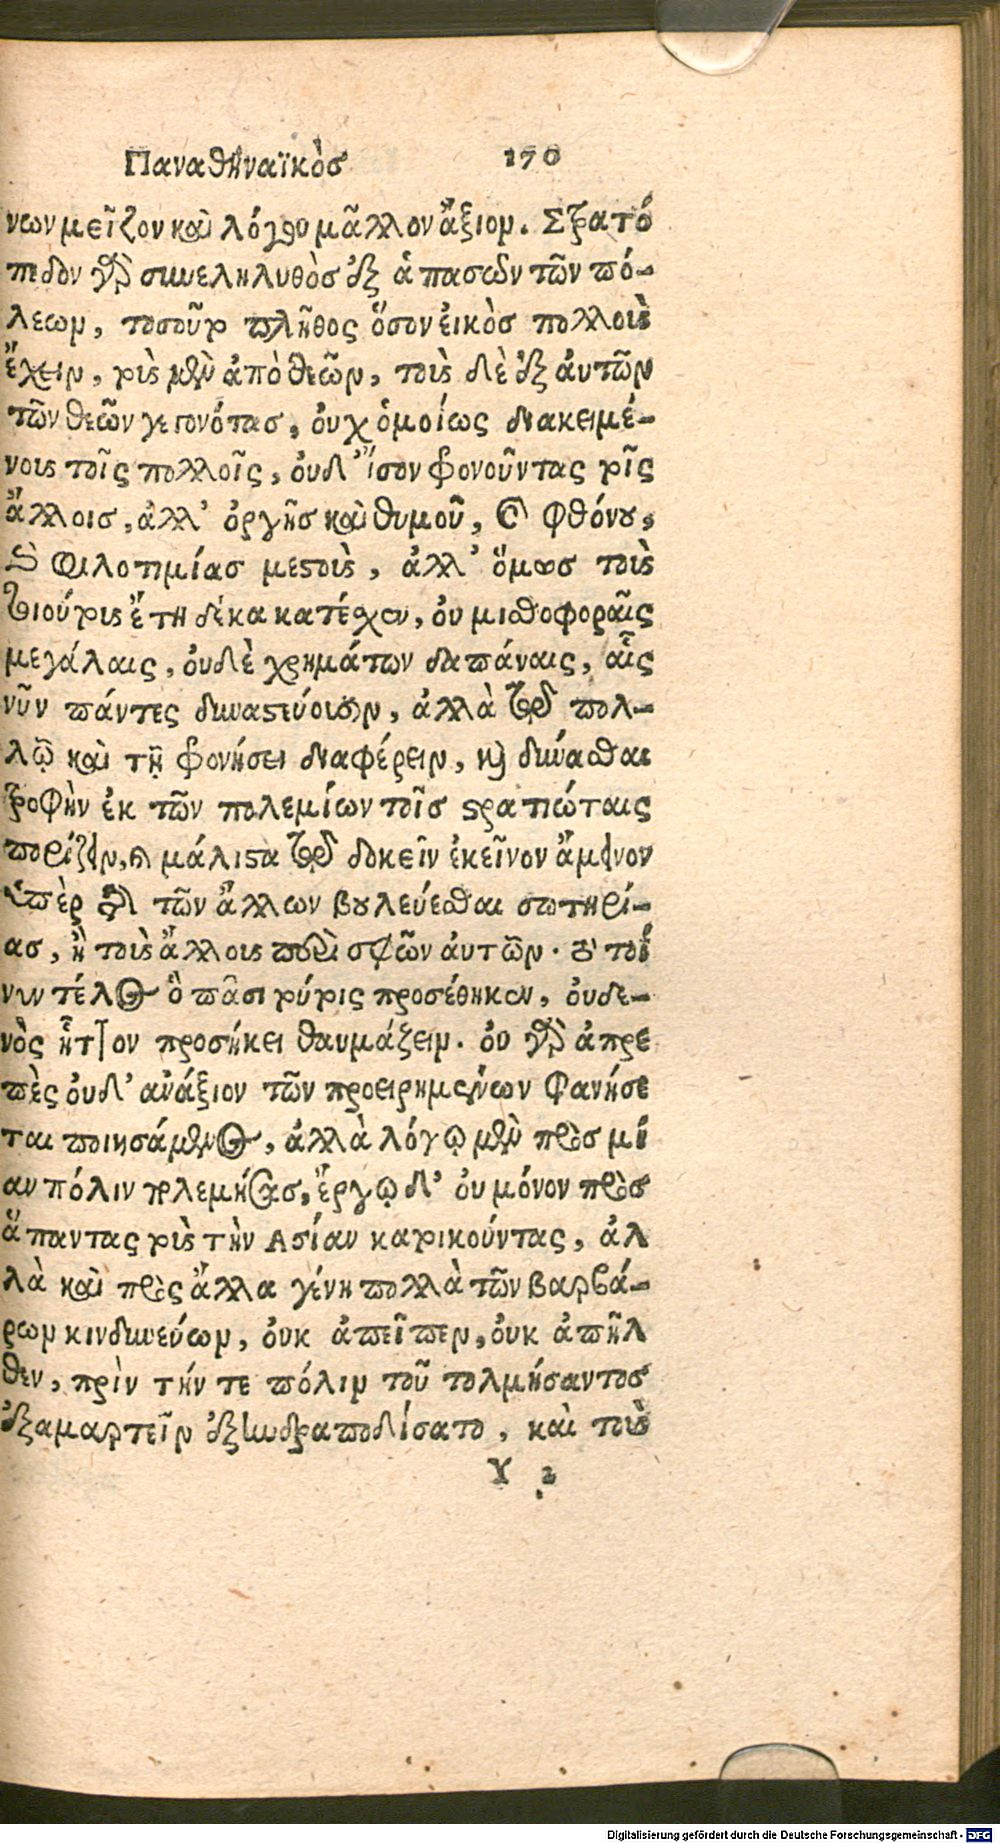 Παναθηναϊκὸς 170
νων μεῖζον καὶ λόγου μᾶλλον ἄξιον. Στρατό
πεδον γὰρ συνεληλυθὸς ἐξ ἁπασῶν τῶν πό-
λεων, τοσοῦτον πλῆθος ὅσον εἰκὸς πολλοὺς
ἔχειν, τοὺς μὲν ἀπὸ θεῶν, τοὺς δὲ ἐξ ἀυτῶν
τῶν θεῶν γεγονότας, ὀυχ ὁμοίως διακειμέ-
νους τοῖς πολλοῖς, ὀυδ' ἴσον φρονοῦντας τοῖς
ἄλλοις, ἀλλ' ὀργῆς καὶ θυμοῦ, καὶ φθόνου,
καὶ φιλοτιμίας μεστοὺς, ἀλλ' ὅμως τοὺς
τοιούτους ἔτη δέκα κατέσχεν, ὀυ μισθοφοραῖς
μεγάλαις, ὀυδὲ χρημάτων δαπάναις, αἷς
νῦν πάντες δυναστεύουσιν, ἀλλὰ τῷ πολ-
λῷ καὶ τῇ φρονήσει διαφέρειν, καὶ δύνασθαι
τροφὴν ἐκ τῶν πολεμίων τοῖς στρατιώταις
πορίζειν, καὶ μάλιστα τῷ δοκεῖν ἐκεῖνον ἄμεινον
ὑπὲρ τῆς τῶν ἄλλων βουλεύεσθαι σωτηρί-
ας, ἢ τοὺς ἄλλους περὶ σφῶν ἀυτῶν. τὸ τοί
νυν τέλος ὃ πᾶσι τούτοις προσέθηκεν, ὀυδε-
νὸς ἧττον προσήκει θαυμάζειν. ὀυ γὰρ ἀπρε
πὲς ὀυδ' ἀνάξιον τῶν προειρημένων φανήσε
ται ποιησάμενος, ἀλλὰ λόγῳ μὲν πρὸς μί
αν πόλιν πολεμήσας, ἔργῳ δ' ὀυ μόνον πρὸς
ἅπαντας τοὺς τὴν Ασίαν κατοικούντας, ἀλ
λὰ καὶ πρὸς ἄλλα γένη πολλὰ τῶν βαρβά-
ρων κινδυνεύων, ὀυκ ἀπεῖπεν, ὀυκ ἀπῆλ
θεν, πρὶν τήν τε πόλιν τοῦ τολμήσαντος
ἐξαμαρτεῖν ἐξηνδραποδίσατο, καὶ τοὺς
Υ 2
Digitalisierung gefördert durch die Deutsche Forschungsgemeinschaft - DFG